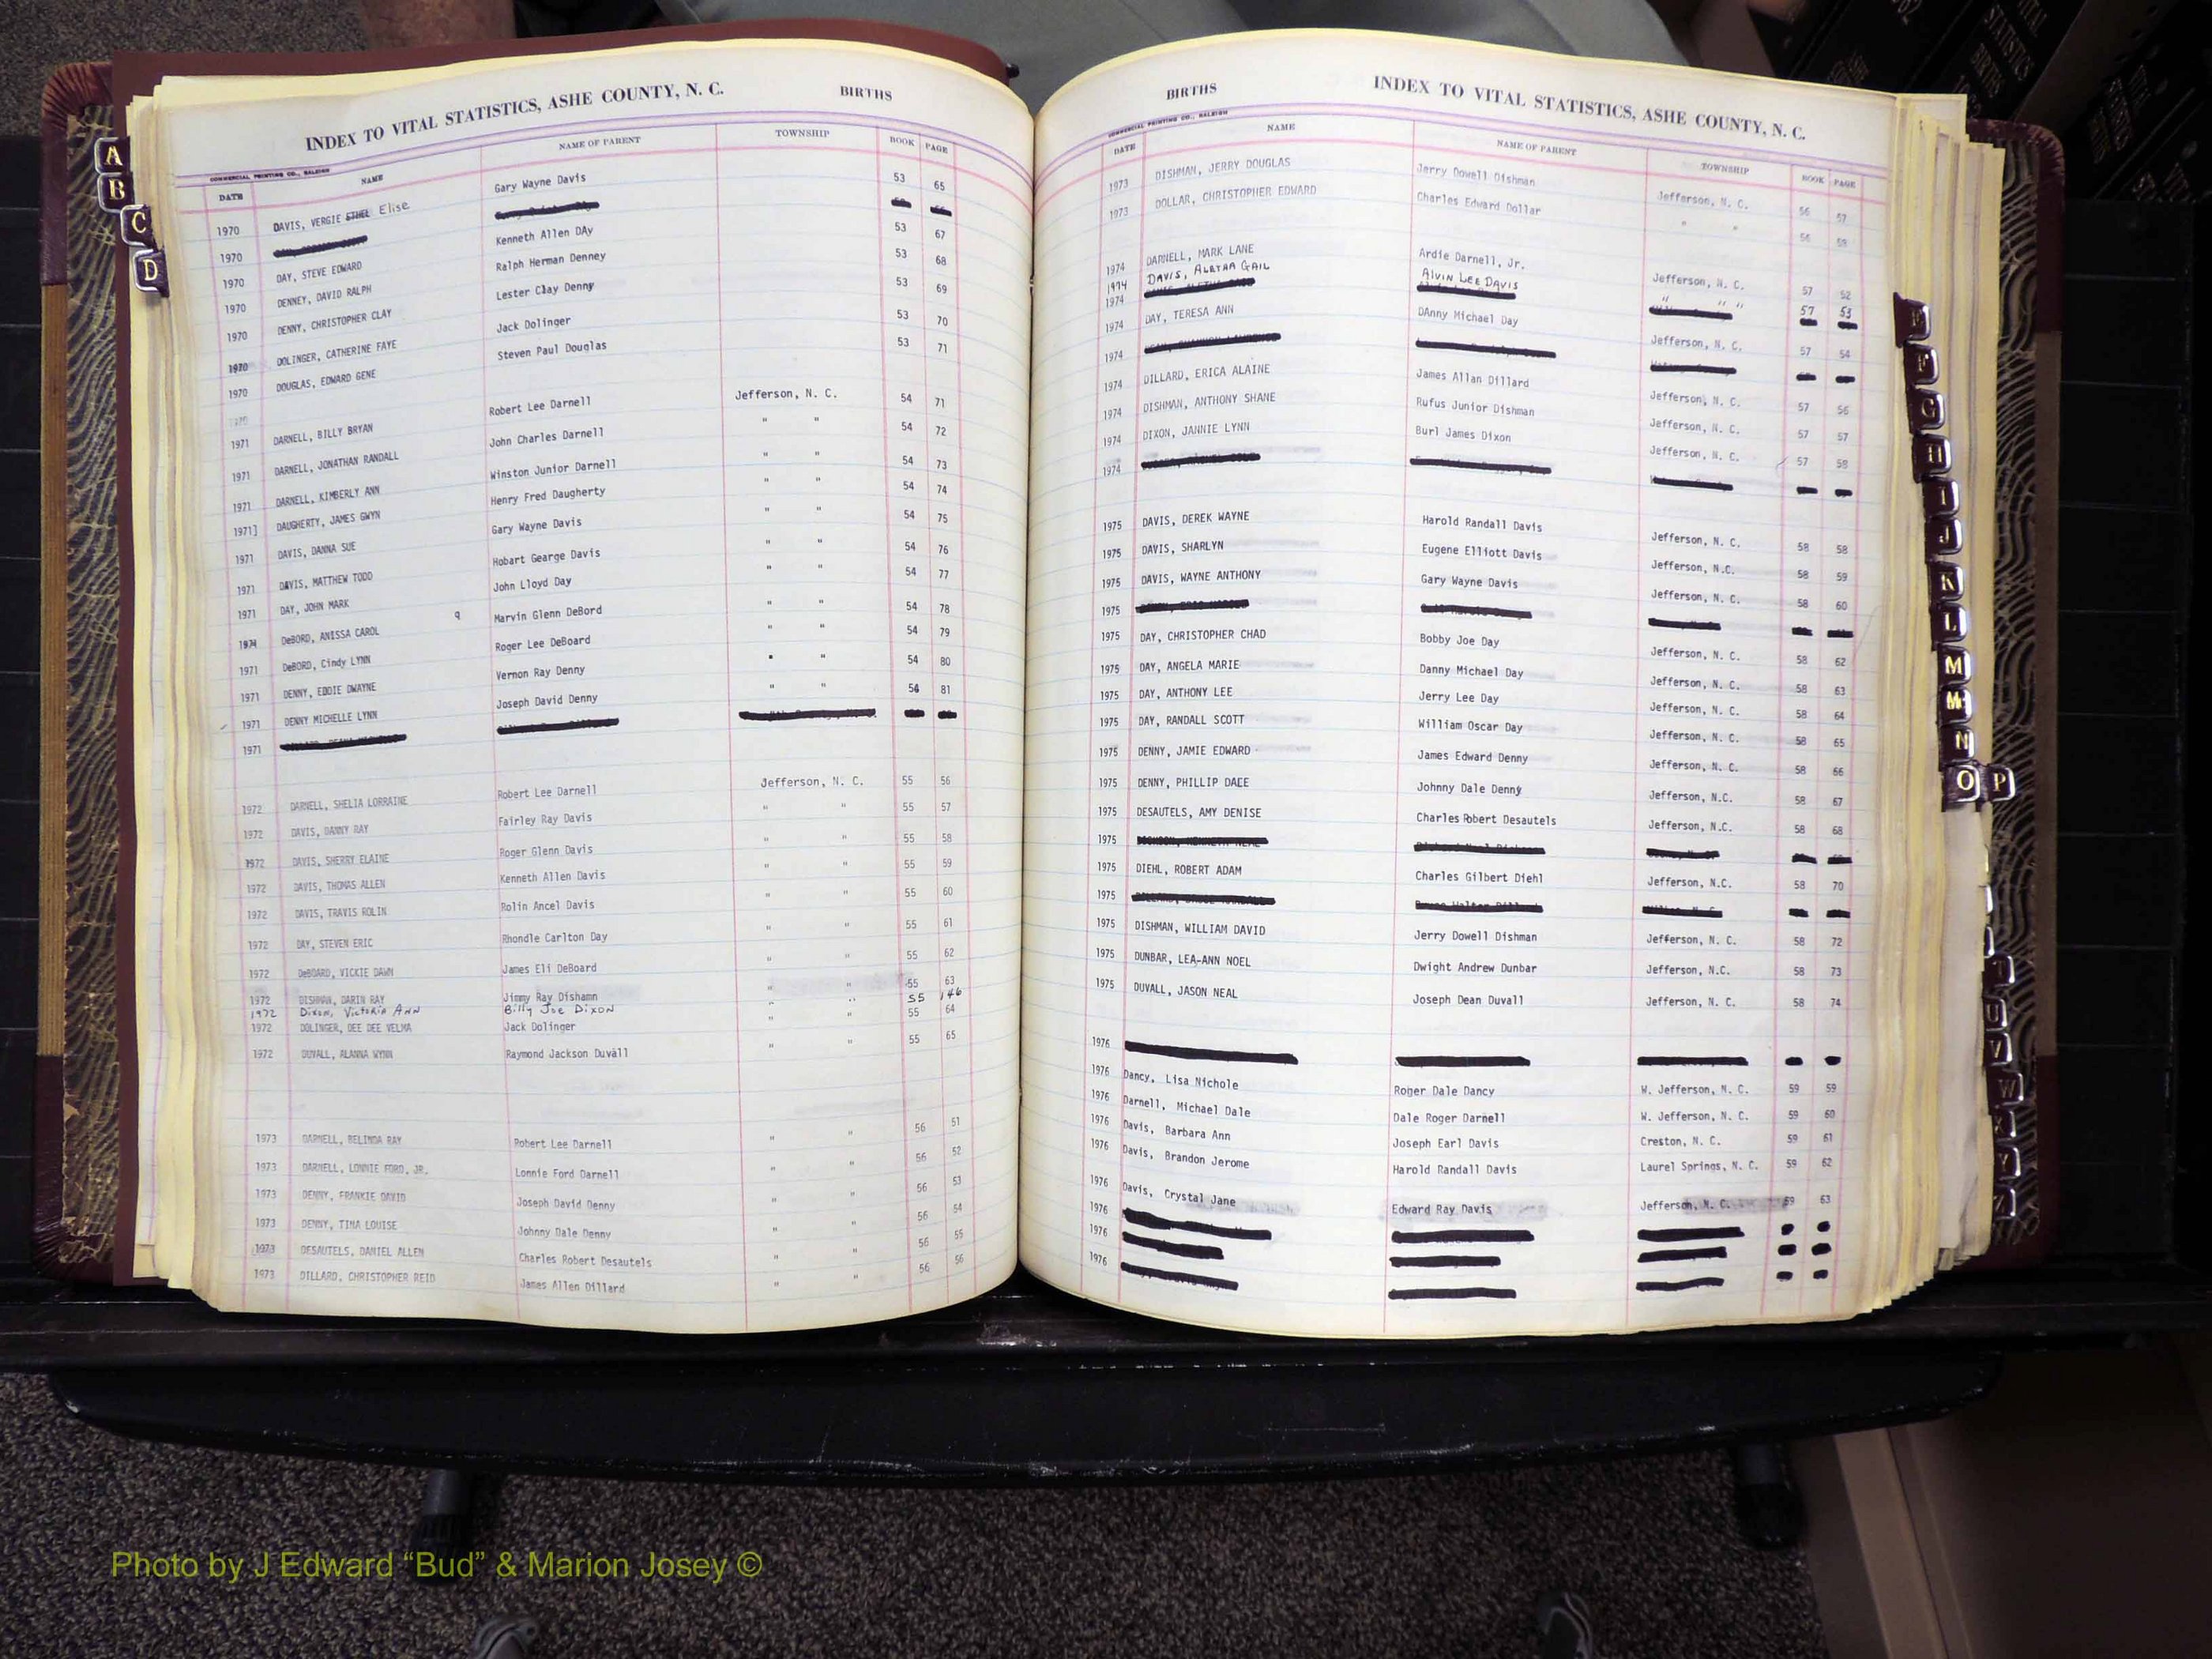 INDEX TO VITAL STATISTICS, ASHE COUNTY, N. C. BIRTHS
COMMERCIAL PRINTING CO., RALEIGH
DATE NAME NAME OF PARENT TOWNSHIP BOOK PAGE
1970 DAVIS, VERGIE ETHEL Elise Gary Wayne Davis 53 65
1970
1970 DAY, STEVE EDWARD Kenneth Allen DAy 53 67
1970 DENNEY, DAVID RALPH Ralph Herman Denney 53 68
1970 DENNY, CHRISTOPHER CLAY Lester Clay Denny 53 69
1970 DOLINGER, CATHERINE FAYE Jack Dolinger 53 70
1970 DOUGLAS, EDWARD GENE Steven Paul Douglas 53 71
1971 DARNELL, BILLY BRYAN Robert Lee Darnell Jefferson, N. C. 54 71
1971 DARNELL, JONATHAN RANDALL John Charles Darnell " " 54 72
1971 DARNELL, KIMBERLY ANN Winston Junior Darnell " " 54 73
1971] DAUGHERTY, JAMES GWYN Henry Fred Daugherty " " 54 74
1971 DAVIS, DANNA SUE Gary Wayne Davis " " 54 75
1971 DAVIS, MATTHEW TODD Hobart Gearge Davis " " 54 76
1971 DAY, JOHN MARK John Lloyd Day " " 54 77
1971 DeBORD, ANISSA CAROL q Marvin Glenn DeBord " " 54 78
1971 DeBORD, Cindy LYNN Roger Lee DeBoard " " 54 79
1971 DENNY, EDDIE DWAYNE Vernon Ray Denny " " 54 80
1971 DENNY MICHELLE LYNN Joseph David Denny " " 54 81
1971
1972 DARNELL, SHELIA LORRAINE Robert Lee Darnell Jefferson, N. C. 55 56
1972 DAVIS, DANNY RAY Fairley Ray Davis " " 55 57
1972 DAVIS, SHERRY ELAINE Roger Glenn Davis " " 55 58
1972 DAVIS, THOMAS ALLEN Kenneth Allen Davis " " 55 59
1972 DAVIS, TRAVIS ROLIN Rolin Ancel Davis " " 55 60
1972 DAY, STEVEN ERIC Rhondle Carlton Day " " 55 61
1972 DeBOARD, VICKIE DAWN James Eli DeBoard " " 55 62
1972 DISHMAN, DARIN RAY Jimmy Ray Dishamn " " 55 63
1972 Dixon, Victoria Ann Billy Joe Dixon " " 55 146
1972 DOLINGER, DEE DEE VELMA Jack Dolinger " " 55 64
1972 DUVALL, ALANNA WYNN Raymond Jackson Duvall " " 55 65
1973 DARNELL, BELINDA RAY Robert Lee Darnell " " 56 51
1973 DARNELL, LONNIE FORD, JR. Lonnie Ford Darnell " " 56 52
1973 DENNY, FRANKIE DAVID Joseph David Denny " " 56 53
1973 DENNY, TINA LOUISE Johnny Dale Denny " " 56 54
1973 DESAUTELS, DANIEL ALLEN Charles Robert Desautels " " 56 55
1973 DILLARD, CHRISTOPHER REID James Allen Dillard " " 56 56
BIRTHS INDEX TO VITAL STATISTICS, ASHE COUNTY, N. C.
COMMERCIAL PRINTING CO., RALEIGH
DATE NAME NAME OF PARENT TOWNSHIP BOOK PAGE
1973 DISHMAN, JERRY DOUGLAS Jerry Dowell Dishman Jefferson, N. C. 56 57
1973 DOLLAR, CHRISTOPHER EDWARD Charles Edward Dollar " " 56 58
1974 DARNELL, MARK LANE Ardie Darnell, Jr. Jefferson, N. C. 57 52
1974 DAVIS, ALETHA GAIL ALVIN LEE DAVIS " " " 57 53
1974
1974 DAY, TERESA ANN DAnny Michael Day Jefferson, N. C. 57 54
1974
1974 DILLARD, ERICA ALAINE James Allan Dillard Jefferson, N. C. 57 56
1974 DISHMAN, ANTHONY SHANE Rufus Junior Dishman Jefferson, N. C. 57 57
1974 DIXON, JANNIE LYNN Burl James Dixon Jefferson, N. C. 57 58
1974
1975 DAVIS, DEREK WAYNE Harold Randall Davis Jefferson, N. C. 58 58
1975 DAVIS, SHARLYN Eugene Elliott Davis Jefferson, N.C. 58 59
1975 DAVIS, WAYNE ANTHONY Gary Wayne Davis Jefferson, N. C. 58 60
1975
1975 DAY, CHRISTOPHER CHAD Bobby Joe Day Jefferson, N. C. 58 62
1975 DAY, ANGELA MARIE Danny Michael Day Jefferson, N. C. 58 63
1975 DAY, ANTHONY LEE Jerry Lee Day Jefferson, N. C. 58 64
1975 DAY, RANDALL SCOTT William Oscar Day Jefferson, N. C. 58 65
1975 DENNY, JAMIE EDWARD James Edward Denny Jefferson, N. C. 58 66
1975 DENNY, PHILLIP DALE Johnny Dale Denny Jefferson, N.C. 58 67
1975 DESAUTELS, AMY DENISE Charles Robert Desautels Jefferson, N.C. 58 68
1975
1975 DIEHL, ROBERT ADAM Charles Gilbert Diehl Jefferson, N.C. 58 70
1975
1975 DISHMAN, WILLIAM DAVID Jerry Dowell Dishman Jefferson, N. C. 58 72
1975 DUNBAR, LEA-ANN NOEL Dwight Andrew Dunbar Jefferson, N.C. 58 73
1975 DUVALL, JASON NEAL Joseph Dean Duvall Jefferson, N. C. 58 74
1976
1976 Dancy, Lisa Nichole Roger Dale Dancy W. Jefferson, N. C. 59 59
1976 Darnell, Michael Dale Dale Roger Darnell W. Jefferson, N. C. 59 60
1976 Davis, Barbara Ann Joseph Earl Davis Creston, N. C. 59 61
1976 Davis, Brandon Jerome Harold Randall Davis Laurel Springs, N. C. 59 62
1976 Davis, Crystal Jane Edward Ray Davis Jefferson, N. C. 59 63
1976
1976
1976
A
B
C
D
E
F
G
H
I
J
K
L
M
Mc
N
O P
T
U
V
W
VITAL STATISTICS BIRTHS
Photo by J Edward “Bud” & Marion Josey ©